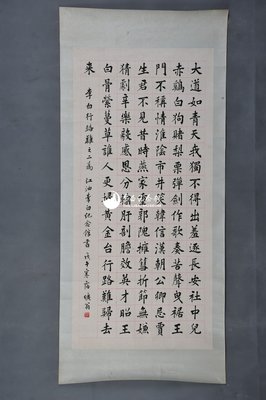 大道如青天我獨不得出羞逐長安社中兒
赤鷄白狗賭梨栗彈劍作歌奏苦聲曳裾王
門不稱情淮陰市井笑韓信漢朝公卿忌賈
生君不見昔時燕家重郭隗擁篲折節無嫌
猜劇辛樂毅感恩分輸肝剖膽效英才昭王
白骨縈蔓草誰人更掃黃金台行路難歸去
來 李白行路難之二為江油李白纪念館書戊午寒露翁